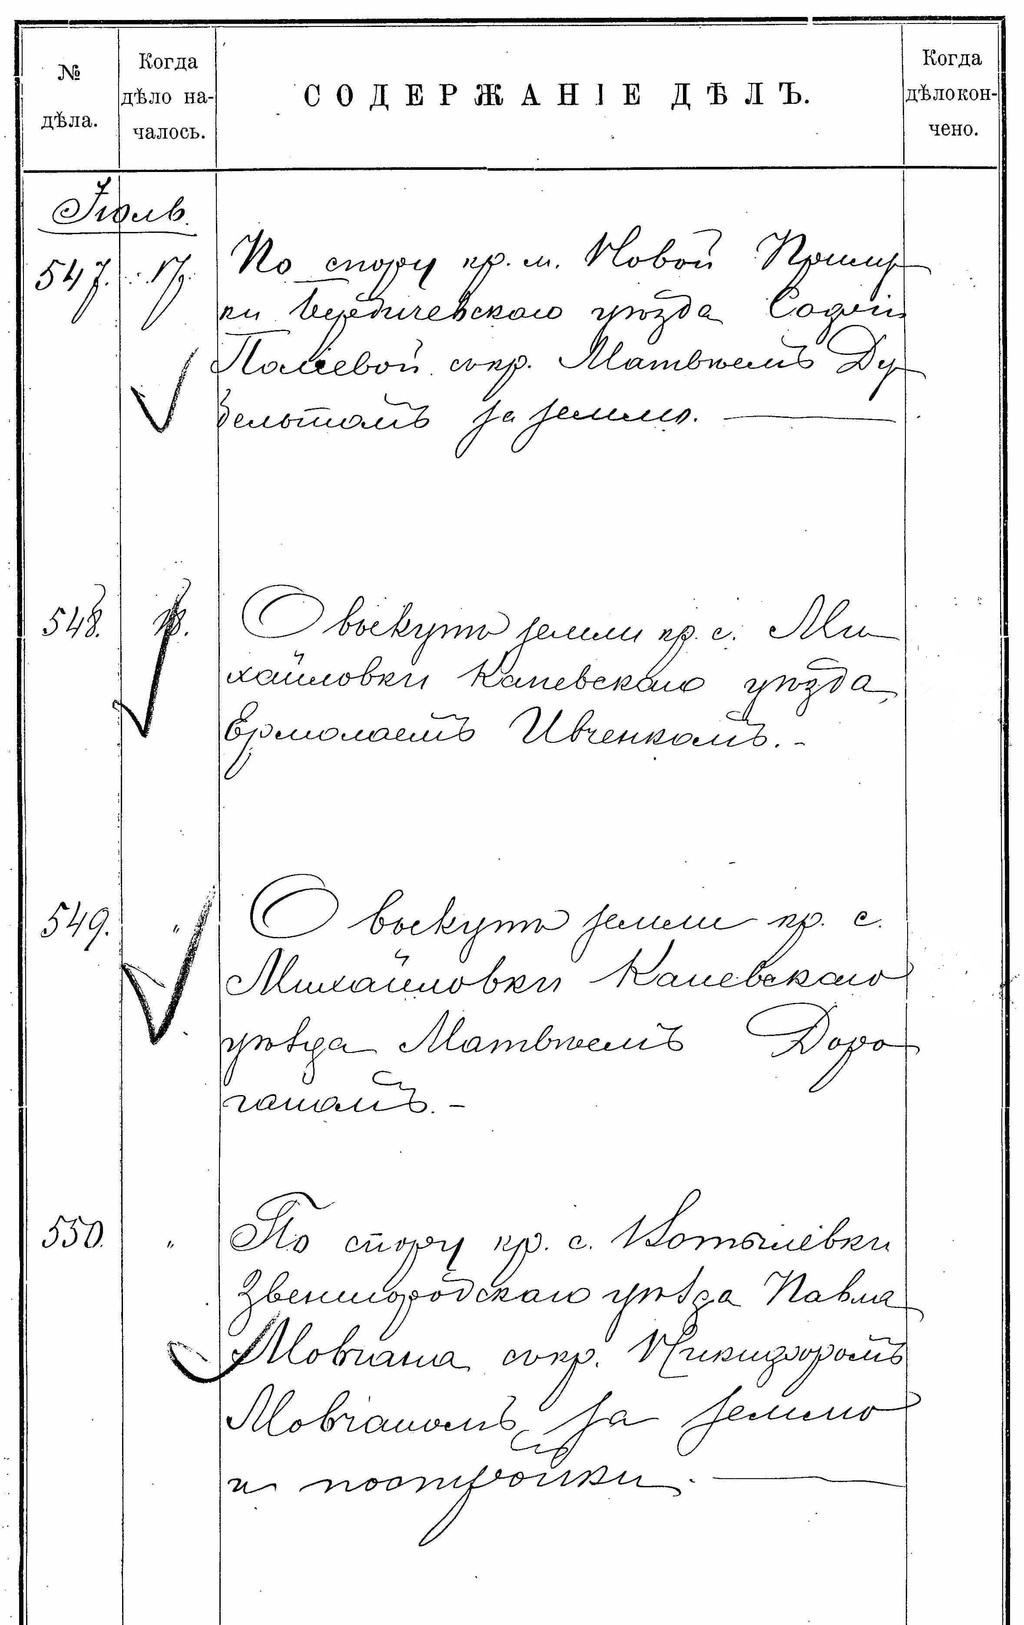 № дѣла.
Когда дѣло на-
чалось.
СОДЕРЖАНІЕ ДѢЛЪ.
Когда
дѣло кон-
чено.
Іюль.
547. 17. По спору кр. м. Новой Прилу
ки Бердичевскаго уѣзда Софіи
Палiевой съ кр. Матвѣемъ Ду
бельтомъ за землю.
548. 18. О выкупѣ земли кр. с. Ми
хайловки Каневскаго уѣзда
Ермолаемъ Ивченкомъ.-
549. " О выкупѣ земли кр. с.
Михайловки Каневскаго
уѣзда Матвѣемъ Доро
ганомъ.-
550. " По спору кр. с. Потылевки
Звенигородскаго уѣзда Павла
Мовчана съ кр. Никифоромъ
Мовчаномъ за землю
и постройки.